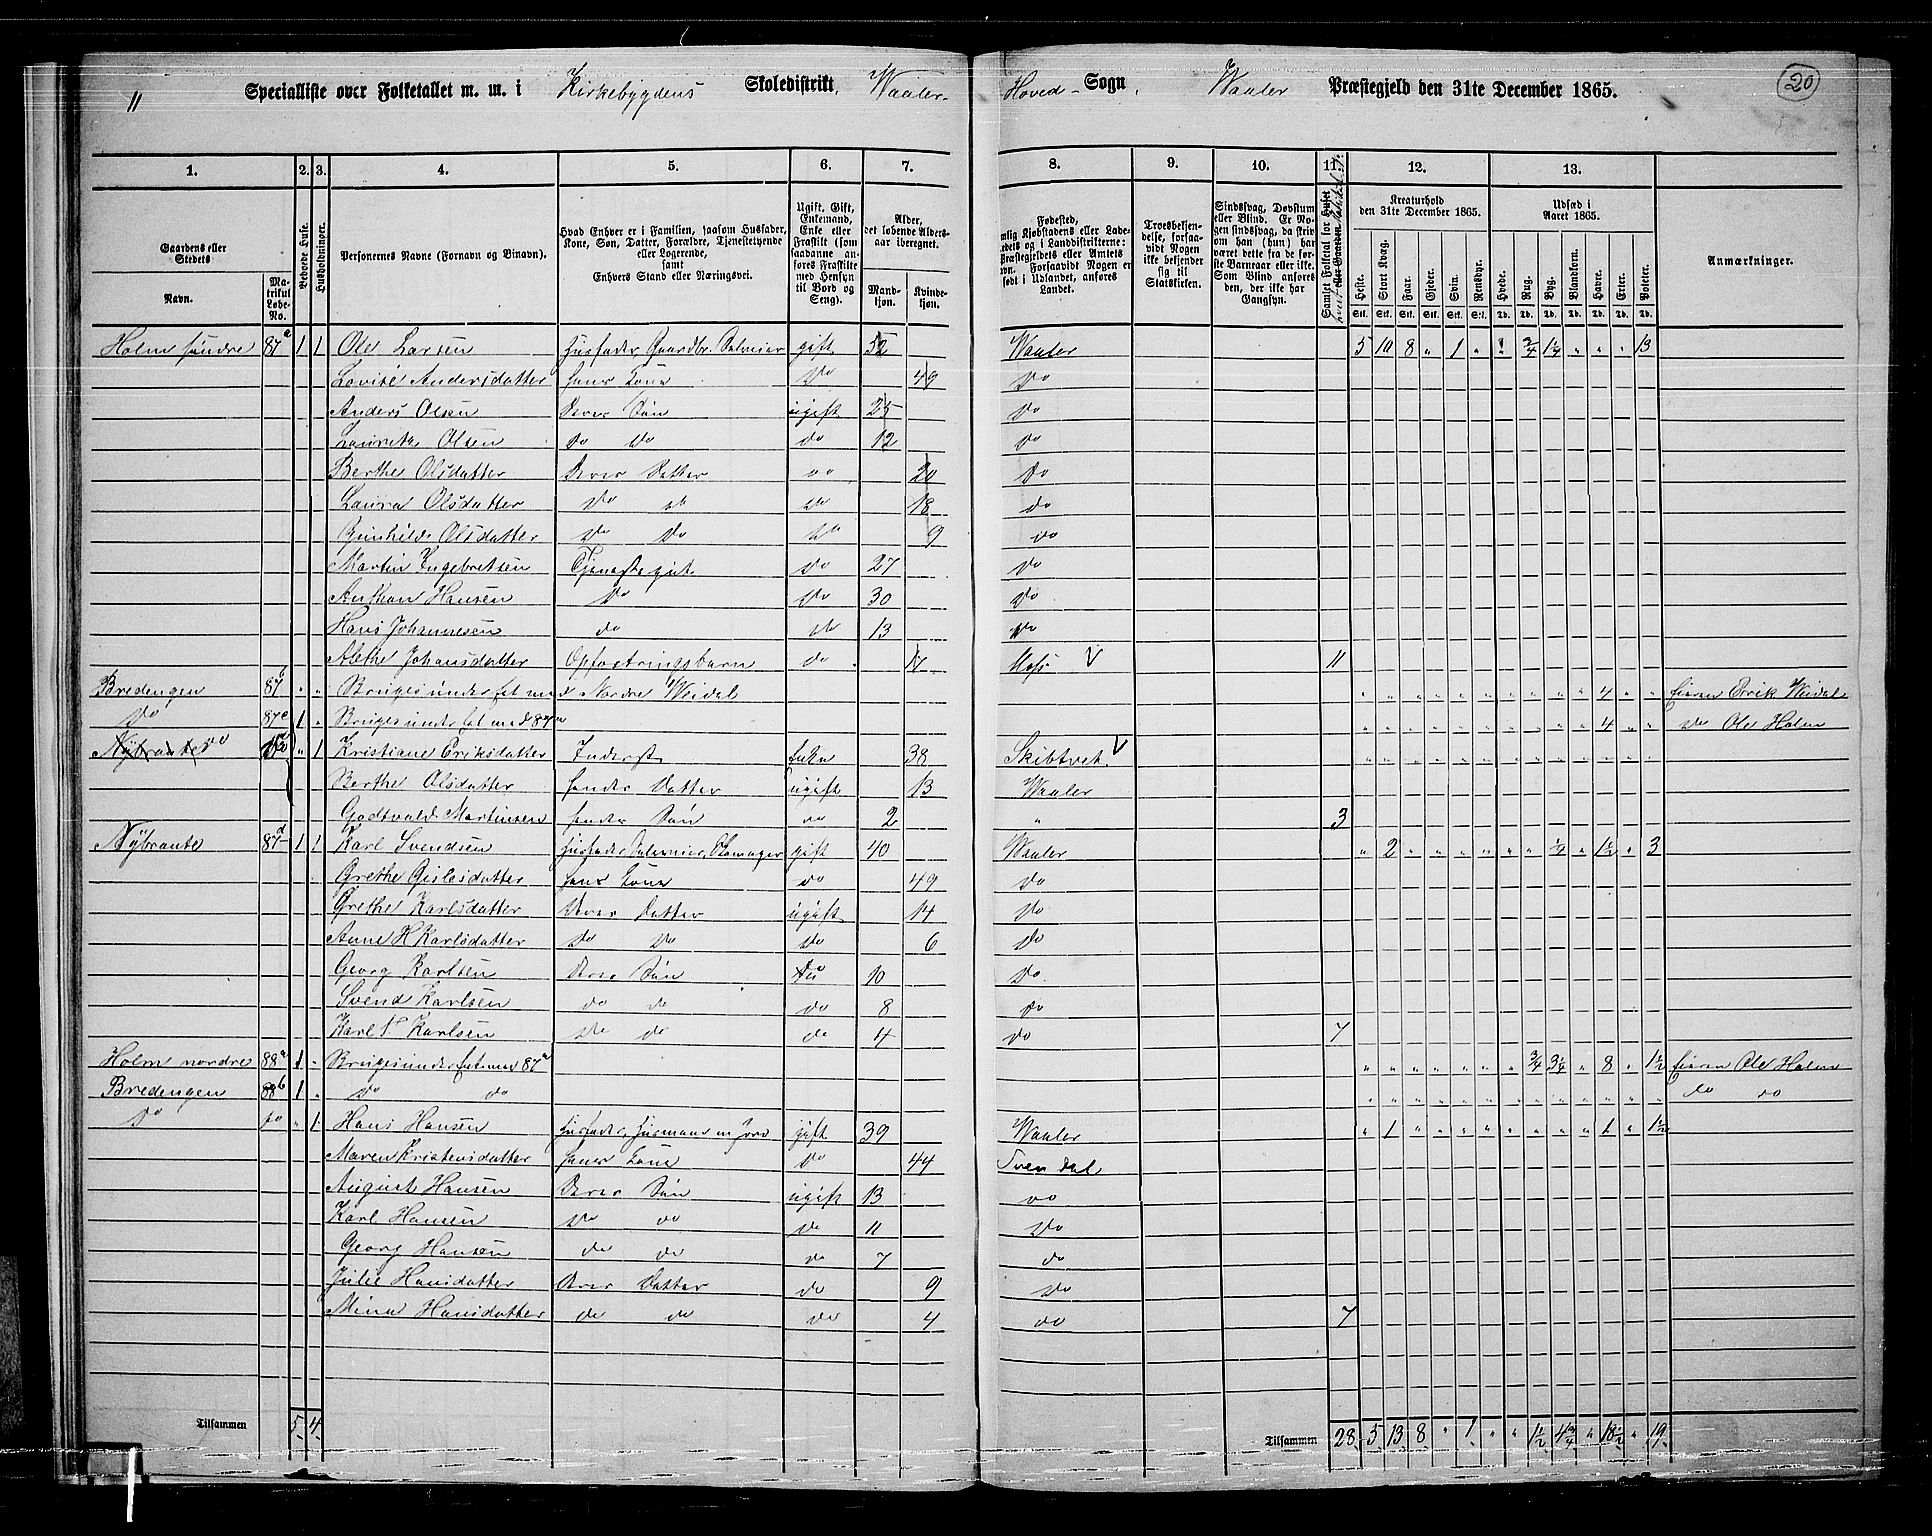 11 Specialliste over Folketallet m. m. i Kirkebygdens Skoledistrikt, Waaler Hoved- Sogn, Waaler Præstegjeld den 31te December 1865. 20
1. 2. 3. 4. 5. 6. 7. 8. 9. 10. 11. 12. 13.
Gaardens eller Stedets Navn. Matrikul Løbe-No. Beboede Huse. Husholdninger. Personernes Navne (Fornavn og Binavn).
Hvad Enhver er i Familien, saasom Husfader, Kone, Søn, Datter, Forældre, Tjenestetyende eller Logerende, samt Enhvers Stand eller Næringsvei.
Ugift, Gift, Enkemand, Enke eller Fraskilt (som saadanne anføres Fraskilte med Hensyn til Bord og Seng).
Alder, det løbende Aldersaar iberegnet. Mandkjøn. Kvindekjøn.
Fødested,
Troesbekjendelse, forsaavidt Nogen ikke bekjender sig til Statskirken.
Sindssvag, Døvstum eller Blind. Er Nogen sindssvag, da skriv om han (hun) har været dette fra de første Barneaar eller ikke. Som Blind anføres den, der ikke har Gangsyn.
Samlet Folketal for Huset
Kreaturhold den 31te December 1865. Heste. Stort Kvæg. Faar. Gjeder. Svin. Rensdyr.
Udsæd i Aaret 1865. Hvede. Rug. Byg. Blandkorn. Havre. Erter. Poteter.
Anmærkninger.
Holm søndre 87a 1 1 Ole Larsen Husfader, Gaardbr. Selveier gift 52 Waaler 5 10 8 " 1 " " 3/4 1 1/4 " " " 13
Lovise Andersdatter hans Kone Do 49 Do
Anders Olsen Deres Søn ugift 25 Do
Lauritz Olsen Do Do do 12 do
Berthe Olsdatter Deres Datter do 20 Do
Laura Olsdatter Do do do 18 do
Gunhilde Olsdatter Do Do do 9 do
Martin Ingebretsen Tjenestegut Do 27 Do
Anthon Hansen Do Do 30 Do
Hans Johannesen do do 13 do
Alethe Johansdatter Opfostringsbarn do 17 Moss V 11
Bredengen 87b " " Bruges under et med Nordre Weidal " " " " " " " " " " 4 " " Eieren Errik Weidal
Do 87c 1 " Bruges under et med 87a " " " " " " " " " " 4 " " Do Ole Holm
Nybraate do do " 1 Kristiane Eriksdatter Inderst Enke 38 Skibtvet V " " " " " " " " " " " " "
Berthe Olsdatter hendes Datter ugift 13 Waaler
Godtvald Martinsen hendes Søn do 2 " 3
Nybraate 87d 1 1 Karl Svendsen Husfader Selveier, gift 40 Waaler " 2 " " " " " " 1/4 " 1 1/2 " 3
Grethe Gislesdatter hans Kone do 49 Do
Grethe Karlsdatter Deres Datter ugift 14 Do
Anne H Karlsdatter Do Do Do 6 do
Georg Karlsen Deres Søn Do 10 Do
Svend Karlsen do do do 8 do
Karl Karlsen Do do do 4 do 7
Holm nordre 88a 1 " Bruges under et med 87a " " " " " " " 3/4 3 1/4 " 8 " 1 1/2 Eieren Ole Holm
Bredengen 88b 1 " do do " " " " " " " " " " " " " do do
Do do " 1 Hans Hansen Husfader, Husmand m Jord gift 39 Waaler " 1 " " " " " " " " 1 " 1 1/2
Maren Kristensdatter hans Kone Do 44 Svendal
August Hansen Deres Søn ugift 13 do
Karl Hansen Do do do 11 Do
Georg Hansen do do do 7 do
Julie Hansdatter Deres Datter do 9 Do
Mina Hansdatter do do do 4 do 7
Tilsammen 5 4 Tilsammen 28 5 13 8 " 1 " " 1 1/2 4 3/4 " 18 1/2 " 19